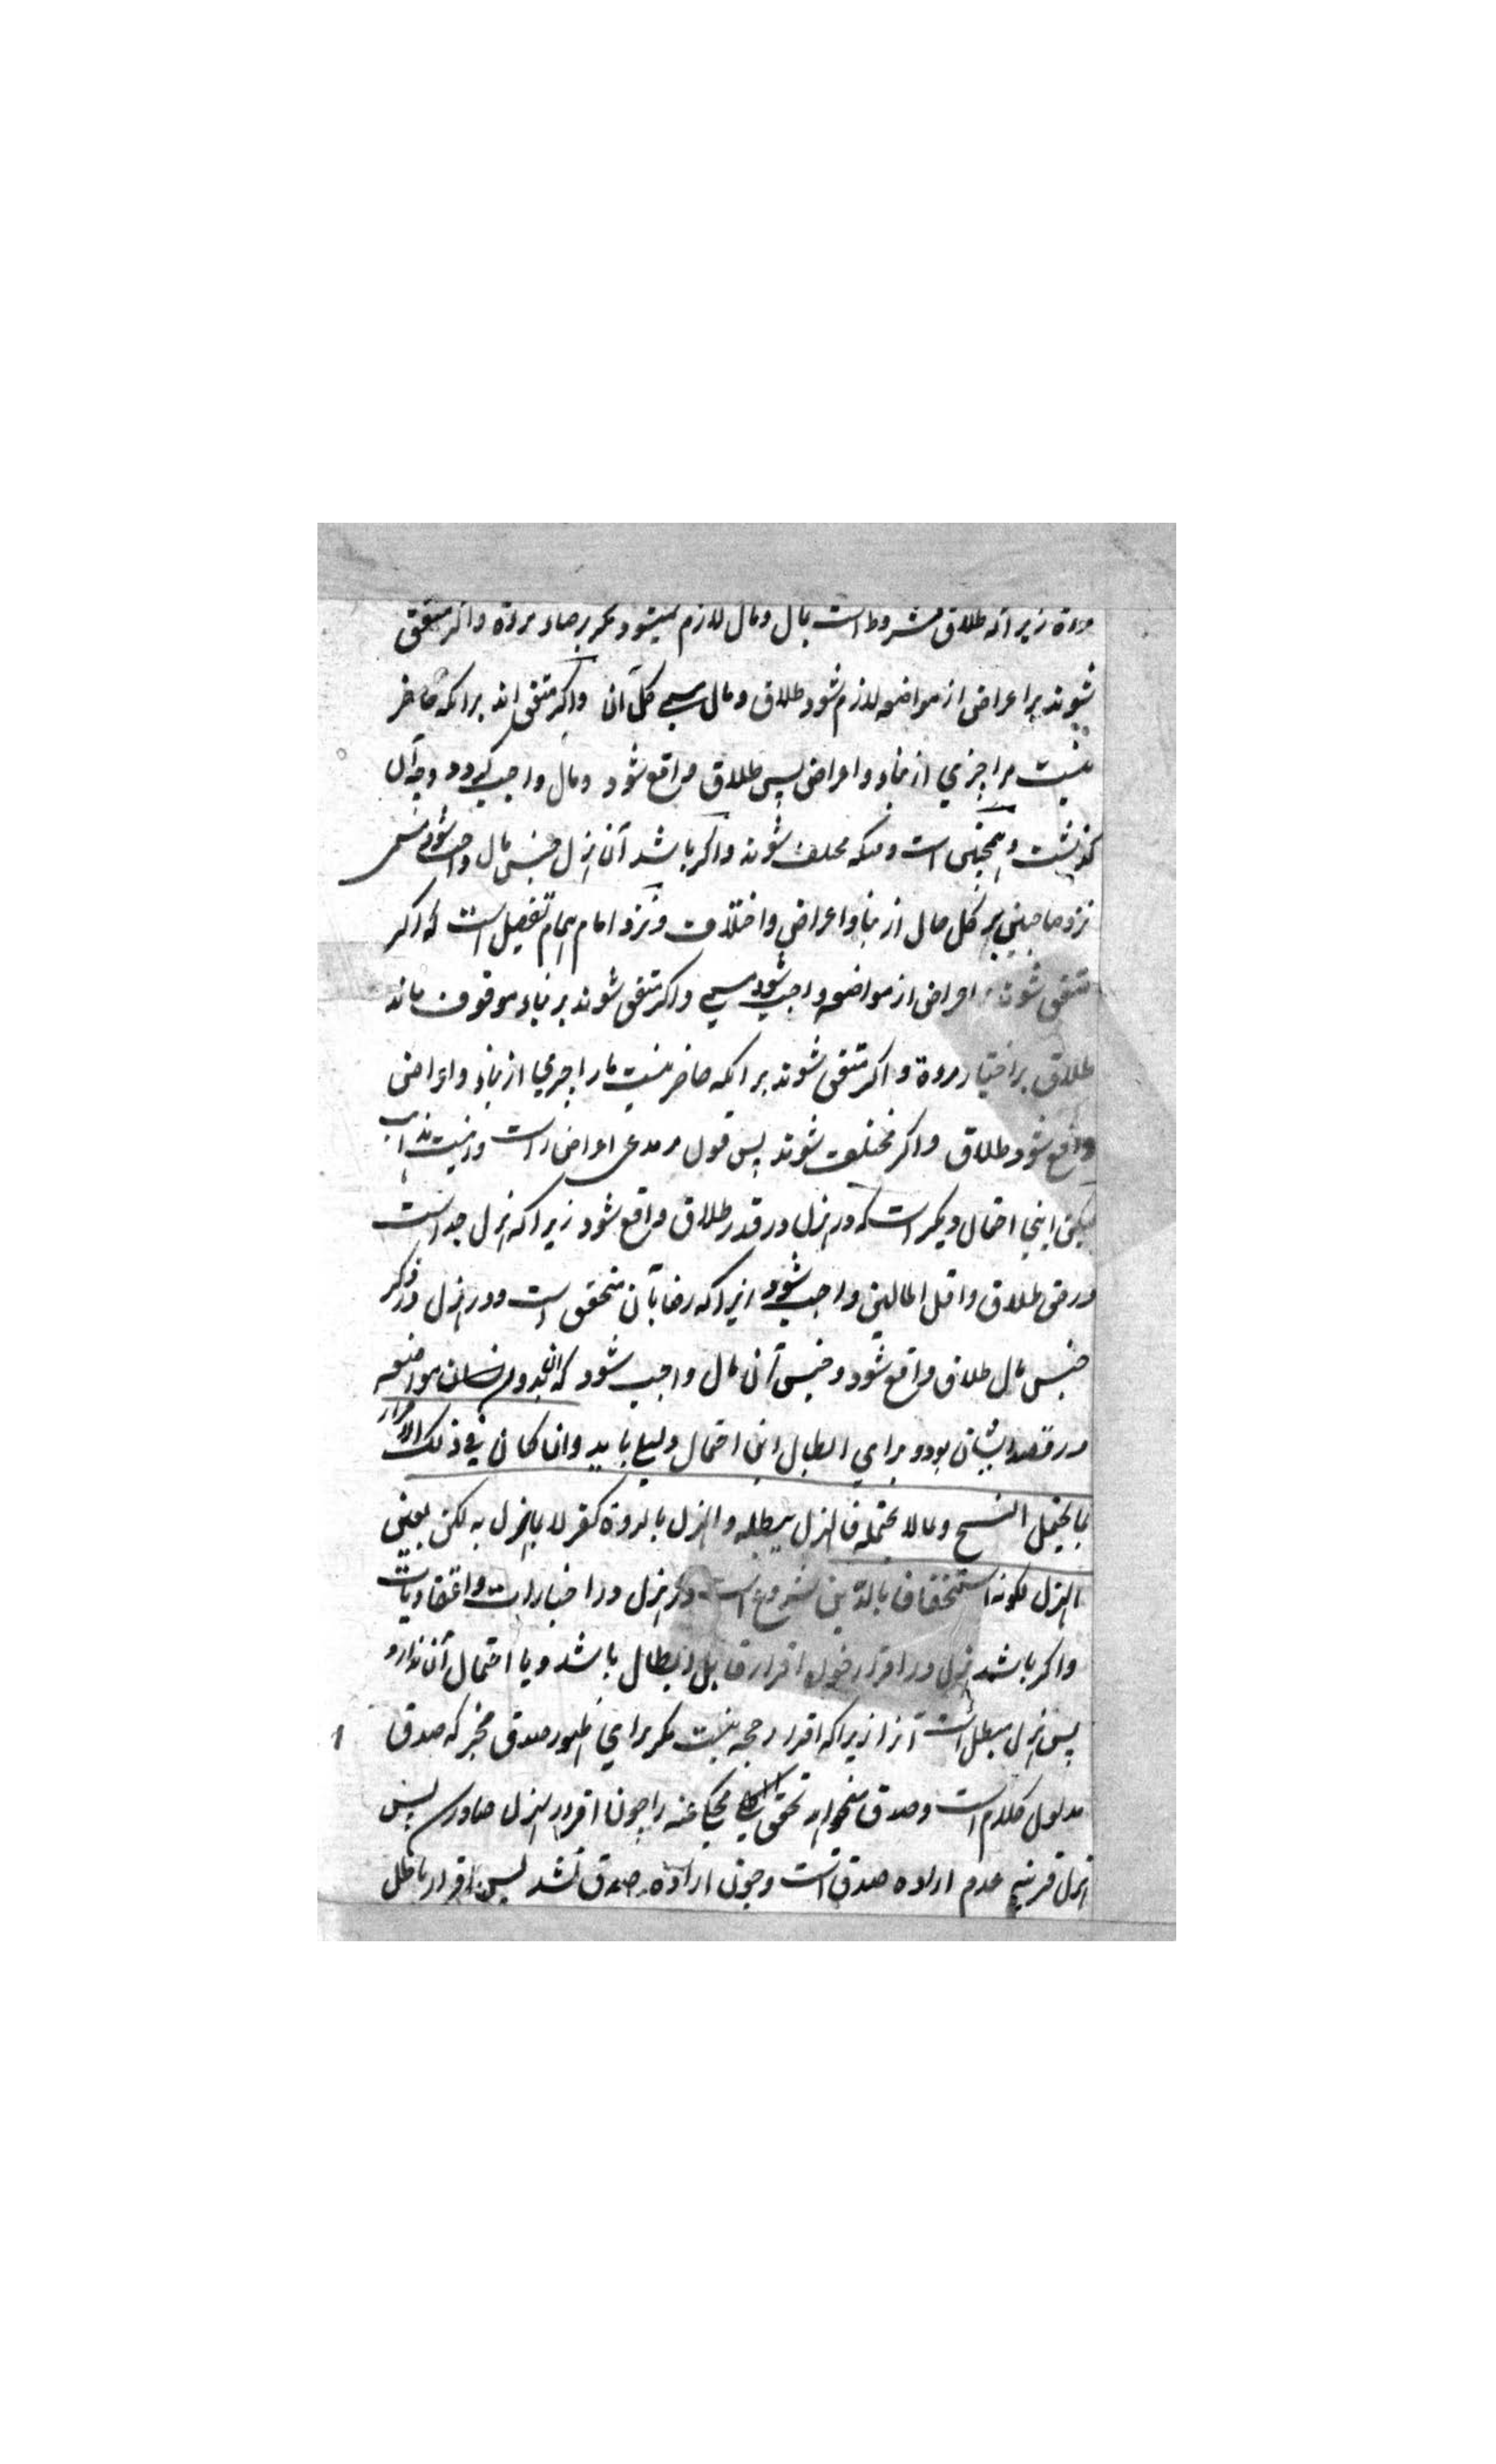 زیرا که طلاق مشروط است بمال و مال لازم نمیشود مکر برضاء مروة و اکر متفق
شوند بر اعراض از مواضعه لازم شود طلاق و مال مسمی کل آن و اکر متفق اند برانکه حاضر
نیست مرا چیزي از بناء و اعراض پس طلاق واقع شود و مال واجب کردد وجه آن
کذشت و همچنین است وقتکه مختلف شوند و اکر باشد آن هزل جنس مال واجب شود مسمی
نزد صاحبین بر کل حال از بناء و اعراض و اختلاف و نزد امام همام تفصیل است که اکر
متفق شوند بر اعراض از مواضعه واجب شود مسمی و اکر متفق شوند بر بناء موقوف ماند
طلاق بر اختیار مروة و اکر متفق شوند برانکه حاضر نیست ما را چیزي از بناء و اعراض
واقع شود طلاق و اکر مختلف شوند پس قول مر مدعی اعراض راست و اینست مذاهب
لیکن اینجا احتمال دیکر است که در هزل در قدر طلاق واقع شود زیرا که هزل جد است
در حق طلاق و اقل المالین واجب شود زیرا که رضا بآن متحقق است و در هزل در ذکر
جنس مال طلاق واقع شود و جنس آن مال واجب شود که بدون مواضعه
در قصد ایشان بود و براي ابطال این احتمال دلیلے باید وان کان في ذلک الاقرار
بما یحتمل الفسخ وبما لا یحتمله فالهزل یبطله والهزل بالردة کفر لا بما هزل به لکن بعین
الهزل لکونه استخفافا بالدین شروع است در هزل در اخبارات و اعتقادیات
و اکر باشد هزل در اقرار خواه اقرار قابل ابطال باشد و یا احتمال آن ندارد
پس هزل مبطل است آنرا زیرا که اقرار حجة نیست مکر براي ظهور صدق مخبر که صدق
مدلول کلام است و صدق میخواهد تحقق محکی عنه را چون اقرار بهزل صادر پس
هزل قرینه عدم اراده صدق است و چون اراده صدق نشد پس اقرار باطل